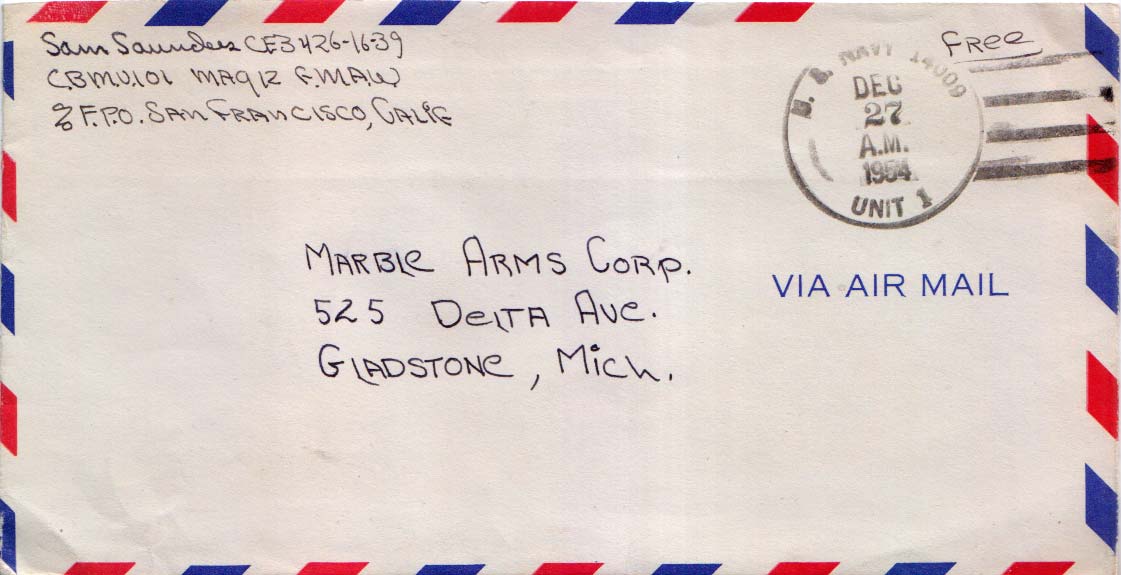 Sam Saunders CE3 426-16-39
C.B.M.U.101 MAG12 F.MAW
% F.P.O. San Francisco, Calif
Free
U. S. NAVY 14009
DEC
27
A.M.
1954
UNIT 1
VIA AIR MAIL
Marble Arms Corp.
525 Delta Ave.
Gladstone, Mich.